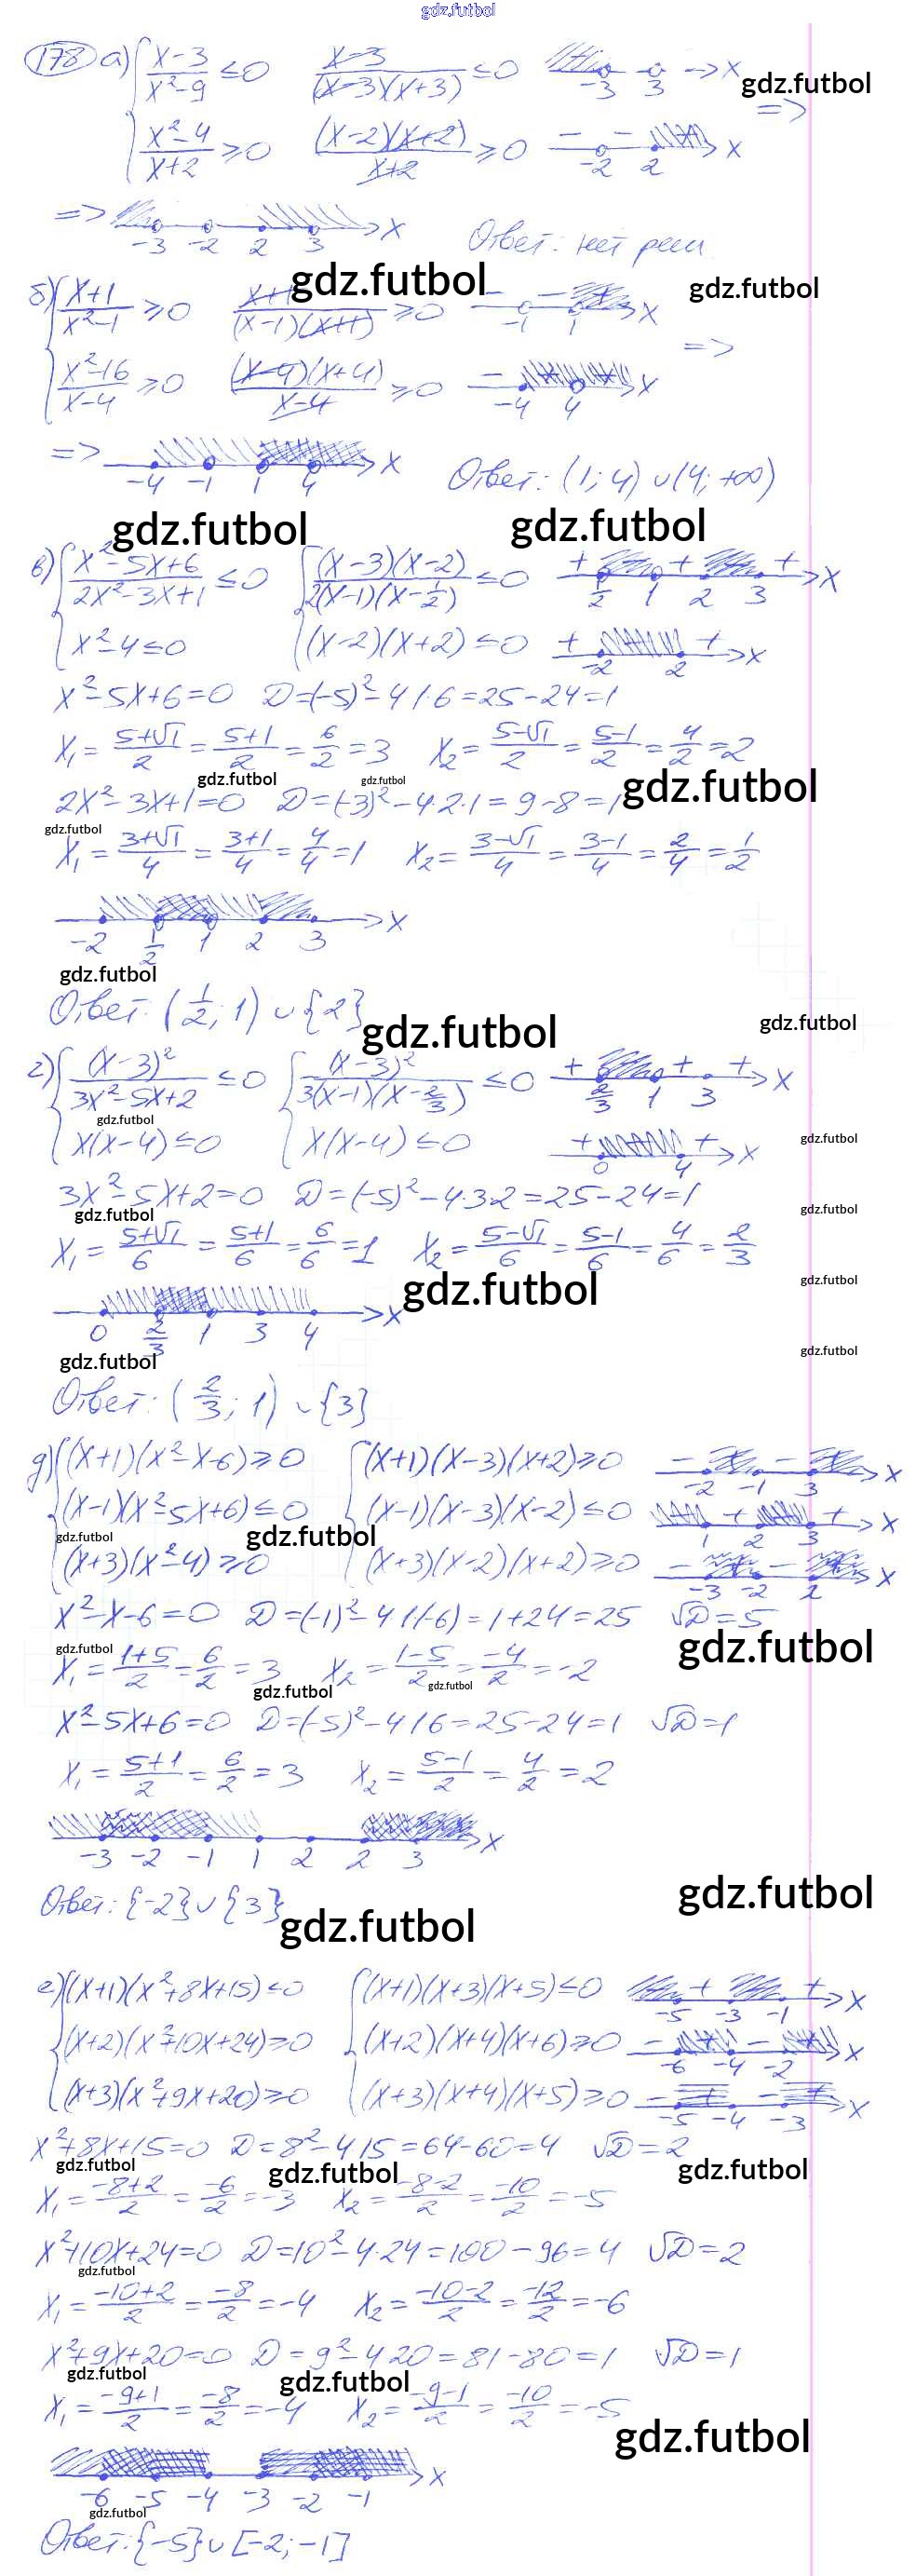 gdz.futbol
178 а) { (x-3)/(x²-9) ≤ 0   (x-3)/((x-3)(x+3)) ≤ 0   -3 3 → x
gdz.futbol
=>
(x²-4)/(x+2) ≥ 0   (x-2)(x+2)/(x+2) ≥ 0   - - -2 2 x
=> -3 -2 2 3 x   Ответ: нет реш.
gdz.futbol
gdz.futbol
б) { (x+1)/(x²-1) ≥ 0   (x+1)/((x-1)(x+1)) ≥ 0   - - + -1 1 x
=>
(x²-16)/(x-4) ≥ 0   (x-4)(x+4)/(x-4) ≥ 0   - + + -4 4 x
=> -4 -1 1 4 x   Ответ: (1; 4) ∪ (4; +∞)
gdz.futbol
gdz.futbol
в) { (x²-5x+6)/(2x²-3x+1) ≤ 0   { (x-3)(x-2)/(2(x-1)(x-1/2)) ≤ 0   + + + 1/2 1 2 3 x
x²-4 ≤ 0   (x-2)(x+2) ≤ 0   + + -2 2 x
x²-5x+6=0   D=(-5)²-4·1·6=25-24=1
x₁ = (5+√1)/2 = (5+1)/2 = 6/2 = 3   x₂ = (5-√1)/2 = (5-1)/2 = 4/2 = 2
gdz.futbol
gdz.futbol
gdz.futbol
2x²-3x+1=0   D=(-3)²-4·2·1=9-8=1
gdz.futbol
x₁ = (3+√1)/4 = (3+1)/4 = 4/4 = 1   x₂ = (3-√1)/4 = (3-1)/4 = 2/4 = 1/2
-2 1/2 1 2 3 x
gdz.futbol
Ответ: (1/2; 1) ∪ {2}
gdz.futbol
gdz.futbol
г) { (x-3)²/(3x²-5x+2) ≤ 0   { (x-3)²/(3(x-1)(x-2/3)) ≤ 0   + + + 2/3 1 3 x
gdz.futbol
x(x-4) ≤ 0   x(x-4) ≤ 0   + + 0 4 x
gdz.futbol
3x²-5x+2=0   D=(-5)²-4·3·2=25-24=1
gdz.futbol
gdz.futbol
x₁ = (5+√1)/6 = (5+1)/6 = 6/6 = 1   x₂ = (5-√1)/6 = (5-1)/6 = 4/6 = 2/3
gdz.futbol
gdz.futbol
0 2/3 1 3 4 x
gdz.futbol
gdz.futbol
Ответ: (2/3; 1) ∪ {3}
д) { (x+1)(x²-x-6) ≥ 0   { (x+1)(x-3)(x+2) ≥ 0   - - -2 -1 3 x
(x-1)(x²-5x+6) ≤ 0   (x-1)(x-3)(x-2) ≤ 0   + + 1 2 3 x
gdz.futbol
gdz.futbol
(x+3)(x²-4) ≥ 0   (x+3)(x-2)(x+2) ≥ 0   - - -3 -2 2 x
x²-x-6=0   D=(-1)²-4·1·(-6)=1+24=25   √D=5
gdz.futbol
gdz.futbol
x₁ = (1+5)/2 = 6/2 = 3   x₂ = (1-5)/2 = -4/2 = -2
gdz.futbol
gdz.futbol
x²-5x+6=0   D=(-5)²-4·1·6=25-24=1   √D=1
x₁ = (5+1)/2 = 6/2 = 3   x₂ = (5-1)/2 = 4/2 = 2
-3 -2 -1 1 2 2 3 x
Ответ: {-2} ∪ {3}
gdz.futbol
gdz.futbol
е) { (x+1)(x²+8x+15) ≤ 0   { (x+1)(x+3)(x+5) ≤ 0   + + -5 -3 -1 x
(x+2)(x²+10x+24) ≥ 0   (x+2)(x+4)(x+6) ≥ 0   - + - + -6 -4 -2 x
(x+3)(x²+9x+20) ≥ 0   (x+3)(x+4)(x+5) ≥ 0   - + - + -5 -4 -3 x
x²+8x+15=0   D=8²-4·15=64-60=4   √D=2
gdz.futbol
gdz.futbol
gdz.futbol
x₁ = (-8+2)/2 = -6/2 = -3   x₂ = (-8-2)/2 = -10/2 = -5
x²+10x+24=0   D=10²-4·24=100-96=4   √D=2
gdz.futbol
x₁ = (-10+2)/2 = -8/2 = -4   x₂ = (-10-2)/2 = -12/2 = -6
x²+9x+20=0   D=9²-4·20=81-80=1   √D=1
gdz.futbol
gdz.futbol
x₁ = (-9+1)/2 = -8/2 = -4   x₂ = (-9-1)/2 = -10/2 = -5
gdz.futbol
-6 -5 -4 -3 -2 -1 x
gdz.futbol
Ответ: {-5} ∪ [-2; -1]